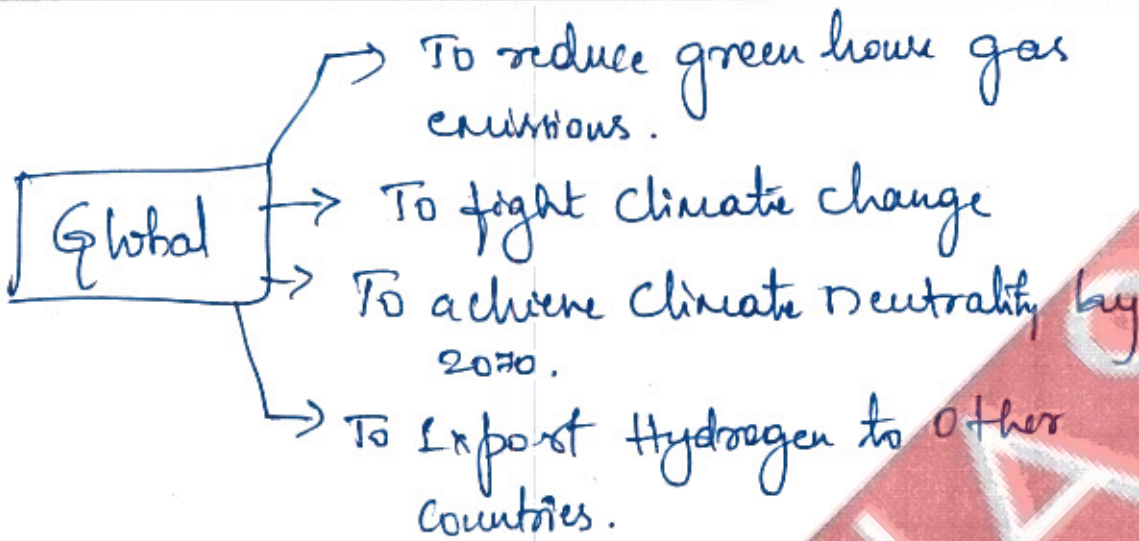 To reduce green house gas
emissions.
Global
To fight Climate change
To achieve Climate Neutrality by
2070.
To Export Hydrogen to Other
Countries.